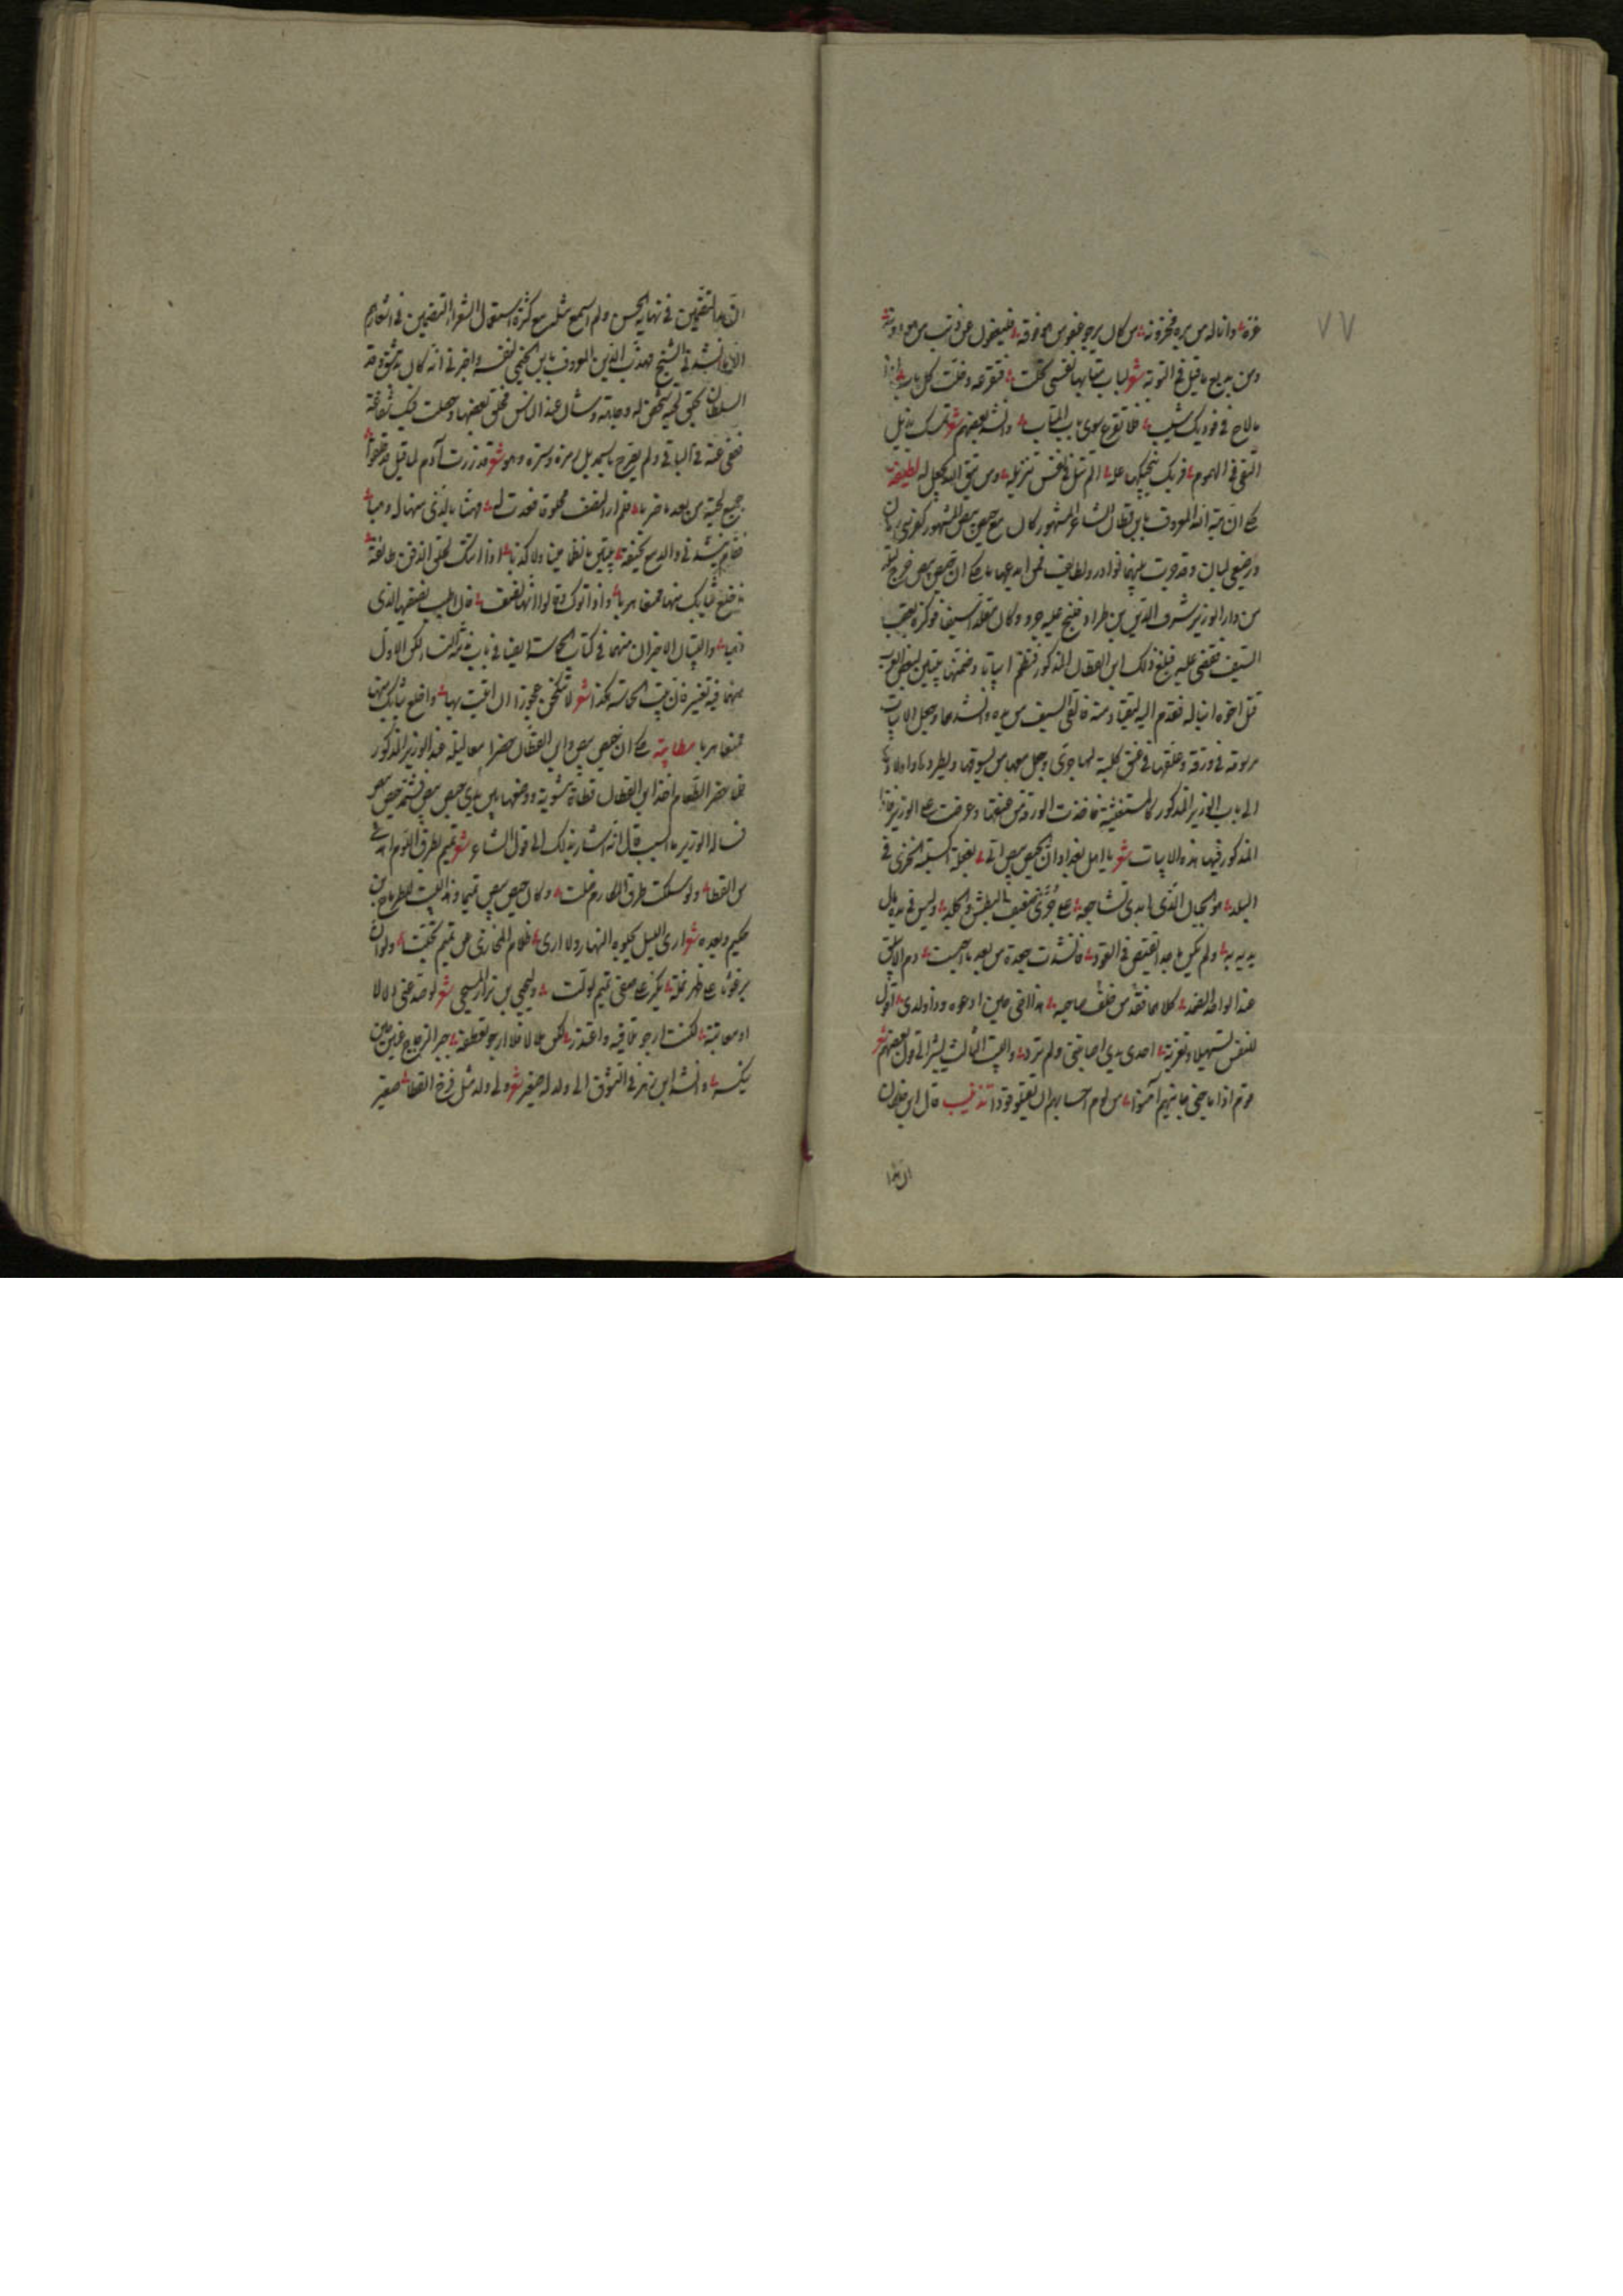 ٧٧
عزه وانا له من بره مخزونه من كان يرجو عفو من هو فوقه فليعفون عن ذنب من هو دونه
ومن بديع ما قيل في التوبة شعر لباب متابها نفسي فقرعه وخلت كل باب
ما لاح في فوديك شيب فلا تقرع سوى باب المتاب وانشد بعضهم شعر تمسك بذيل
التقى في الهموم فربك ينجيك من ومن يتق الله يجعل له لطيفه
حكى ان هبة الله المعروف بابن قطان الشاعر المشهور كان مع حيص بيص المشهور كفرسي رهان
ورضيعي لبان وقد جرت بينهما نوادر ولطايف فمن ابدعها ما حكى ان حيص بيص خرج ليلة
من دار الوزير شرف الدين بن طراد فنبح عليه جرو وكان متقلدا سيفا فوكزه بعقب
السيف فقضى عليه فبلغ ذلك ابن القطان المذكور فنظم ابياتا وضمنها بيتين لبعض العرب
قتل اخوه ابنا له فقدم اليه ليقتاد منه فالقى السيف من يده وانشدهما وجعل الابيات
مربوطة في ورقة وعلقها في عنق كلبة لها جرى وجعل معها من يسوقها ويطردها واولادها
الى باب الوزير المذكور كالمستغيثة فاخذت الورقة من عنقها وعرضت على الوزير فاذا
المذكور فيها هذه الابيات شعر يا اهل بغداد ان الحيص بيص اتى بفعلة اكسبته الخزي في
البلد هو الجبان الذي ابدى تشاجعه على جري ضعيف البطش والجلد وليس في يده مال
يديه به ولم يكن ببوا عنه في القود فانشدت جعدة من بعد ما احتسبت دم الابيلق
عند الواحد الصمد كلاهما خلف من فقد صاحبه هذا اخي حين ادعوه وذا ولدي اقول
للنفس تسهيلا وتعزية احدى يدي اصابتني ولم ترد والبيت الثالث يشير الى قول بعضهم شعر
قوم اذا ما جنى جانيهم آمنوا من لوم احسابهم ان يقتلوا قودا تذنيب قال ابن خلكان
ان هذا
ان هذا التضمين في نهاية الحسن ولم اسمع مثله مع كثرة استعمال الشعراء التضمين في اشعارهم
الا ما انشدني الشيخ مهذب الدين المعروف بابن الخيمي لنفسه واخبرني انه كان بدمشق وقد
السلطان بحلق لحية شخص له وجاهة وشأن عند الناس فحلق بعضها وحصلت فيه شفاعة
فعفى عنه في الباقي ولم يصرح باسمه بل رمزه وستره وهو شعر قد زرت آدم لما قيل قد حلقوا
جميع لحيته من بعد ما ضربا فلم ار النصف محلوقا فعدت له مهنئا بالذي منها له وهبا
فقام ينشدني والدمع يخنقه بيتين ما نظما مينا ولا كذبا اذا اتتك لحلق الذقن طائفة
فاخلع ثيابك منها ممعنا هربا واذا اتوك وقالوا انها نصف فان اطيب نصفيها الذي
ذهبا والبيتان الاخيران منهما في كتاب الحماسة ايضا في باب مذمة النساء لكن الاول
منهما فيه تغيير فان بيت الحماسة هكذا شعر لا تنكحن عجوزا ان اتيت بها واخلع ثيابك منها
ممعنا هربا مطايبة حكى ان حيص بيص وابن القطان حضرا معا ليلة عند الوزير المذكور
فلما حضر الطعام اخذ ابن القطان قطاة مشوية ووضعها بين يدي حيص بيص فشتمه حيص بيص
فسأله الوزير ما السبب قال انه اشار بذلك الى قول الشاعر شعر تميم بطرق اللؤم اهدى
من القطا ولو سلكت طرق المكارم ضلت وكان حيص بيص تميميا وهذا البيت للطرماح بن
حكيم وبعده شعر ارى الليل يجلوه النهار ولا ارى ظلام المخازي عن تميم تجلت ولو ان
برغوثا على ظهر نملة يكر على صفي تميم لولت وليحيى بن نزار المنبجي شعر لو صد عني دلالا
او معاتبة لكنت ارجو تلافيه واعتذر لكن ملالا فلا ارجو تعطفه جبر الزجاج عزيز حين
ينكسر وانشد ابن زهر في التشوق الى ولد له صغير شعر ولي ولد مثل فرخ القطا صغير